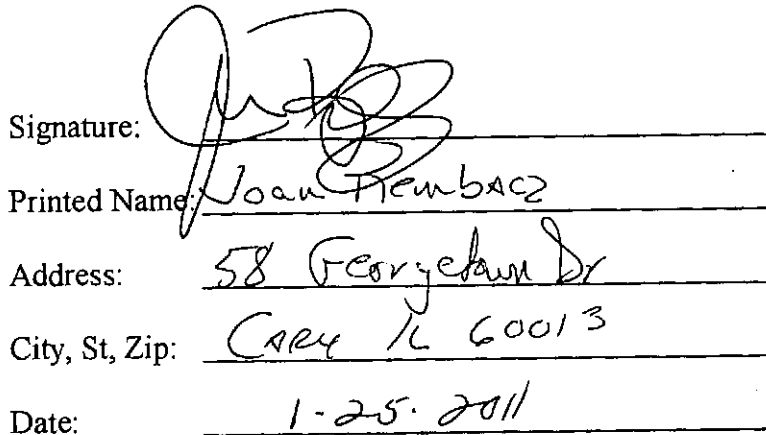 Signature:
Printed Name: Joan
Address: 58 Georgetown Dr
City, St, Zip: CARY IL 60013
Date: 1-25-2011